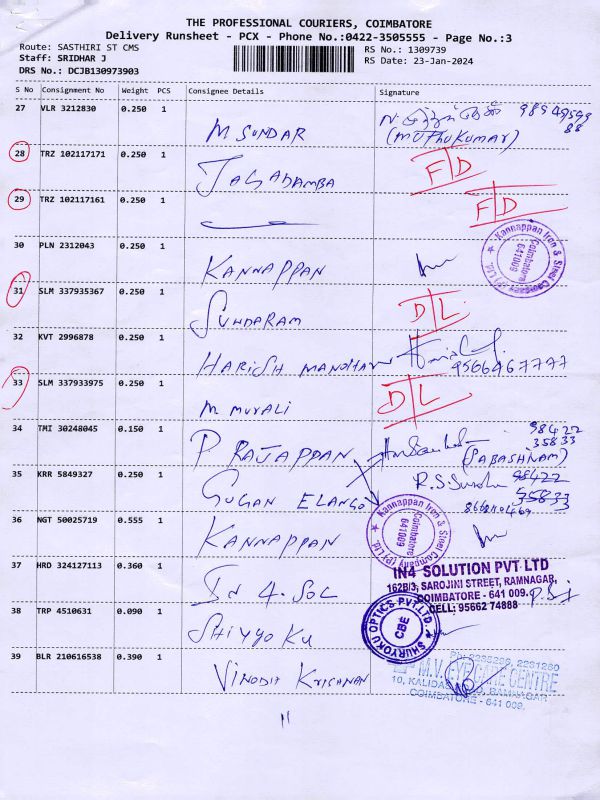 THE PROFESSIONAL COURIERS, COIMBATORE
Delivery Runsheet - PCX - Phone No.:0422-3505555 - Page No.:3
Route: SASTHIRI ST CMS
RS No.: 1309739
Staff: SRIDHAR J
RS Date: 23-Jan-2024
DRS No.: DCJB130973903
S No Consignment No Weight PCS Consignee Details Signature
27 VLR 3212830 0.250 1 M SUNDAR (MUTHUKUMAR)
28 TRZ 102117171 0.250 1 JAGADAMBA F/D
29 TRZ 102117161 0.250 1 F/D
30 PLN 2312043 0.250 1 KANNAPPAN
Kannappan Iron & Steel Company (P) Ltd. Coimbatore 641009
31 SLM 337935367 0.250 1 SUNDARAM D/L
32 KVT 2996878 0.250 1 HARISH MANOHAR 9566467777
33 SLM 337933975 0.250 1 M MURALI D/L
34 TMI 30248045 0.150 1 P RAJAPPAN 98422 35833
35 KRR 5849327 0.250 1 GUGAN ELANGO 98422 35833
36 NGT 50025719 0.555 1 KANNAPPAN
Kannappan Iron & Steel Company (P) Ltd. Coimbatore 641009
37 HRD 324127113 0.360 1 IN 4. SOL
IN4 SOLUTION PVT LTD
162B/3, SAROJINI STREET, RAMNAGAR,
COIMBATORE - 641 009.
CELL: 95662 74888
38 TRP 4510631 0.090 1 SHIYYO KU
SHURYOKU OPTICS PVT.LTD CBE
39 BLR 210616538 0.390 1 VINODH KRISHNAN
M.V. EYE CARE CENTRE
10, KALIDAS ROAD, RAMNAGAR
COIMBATORE - 641 009.